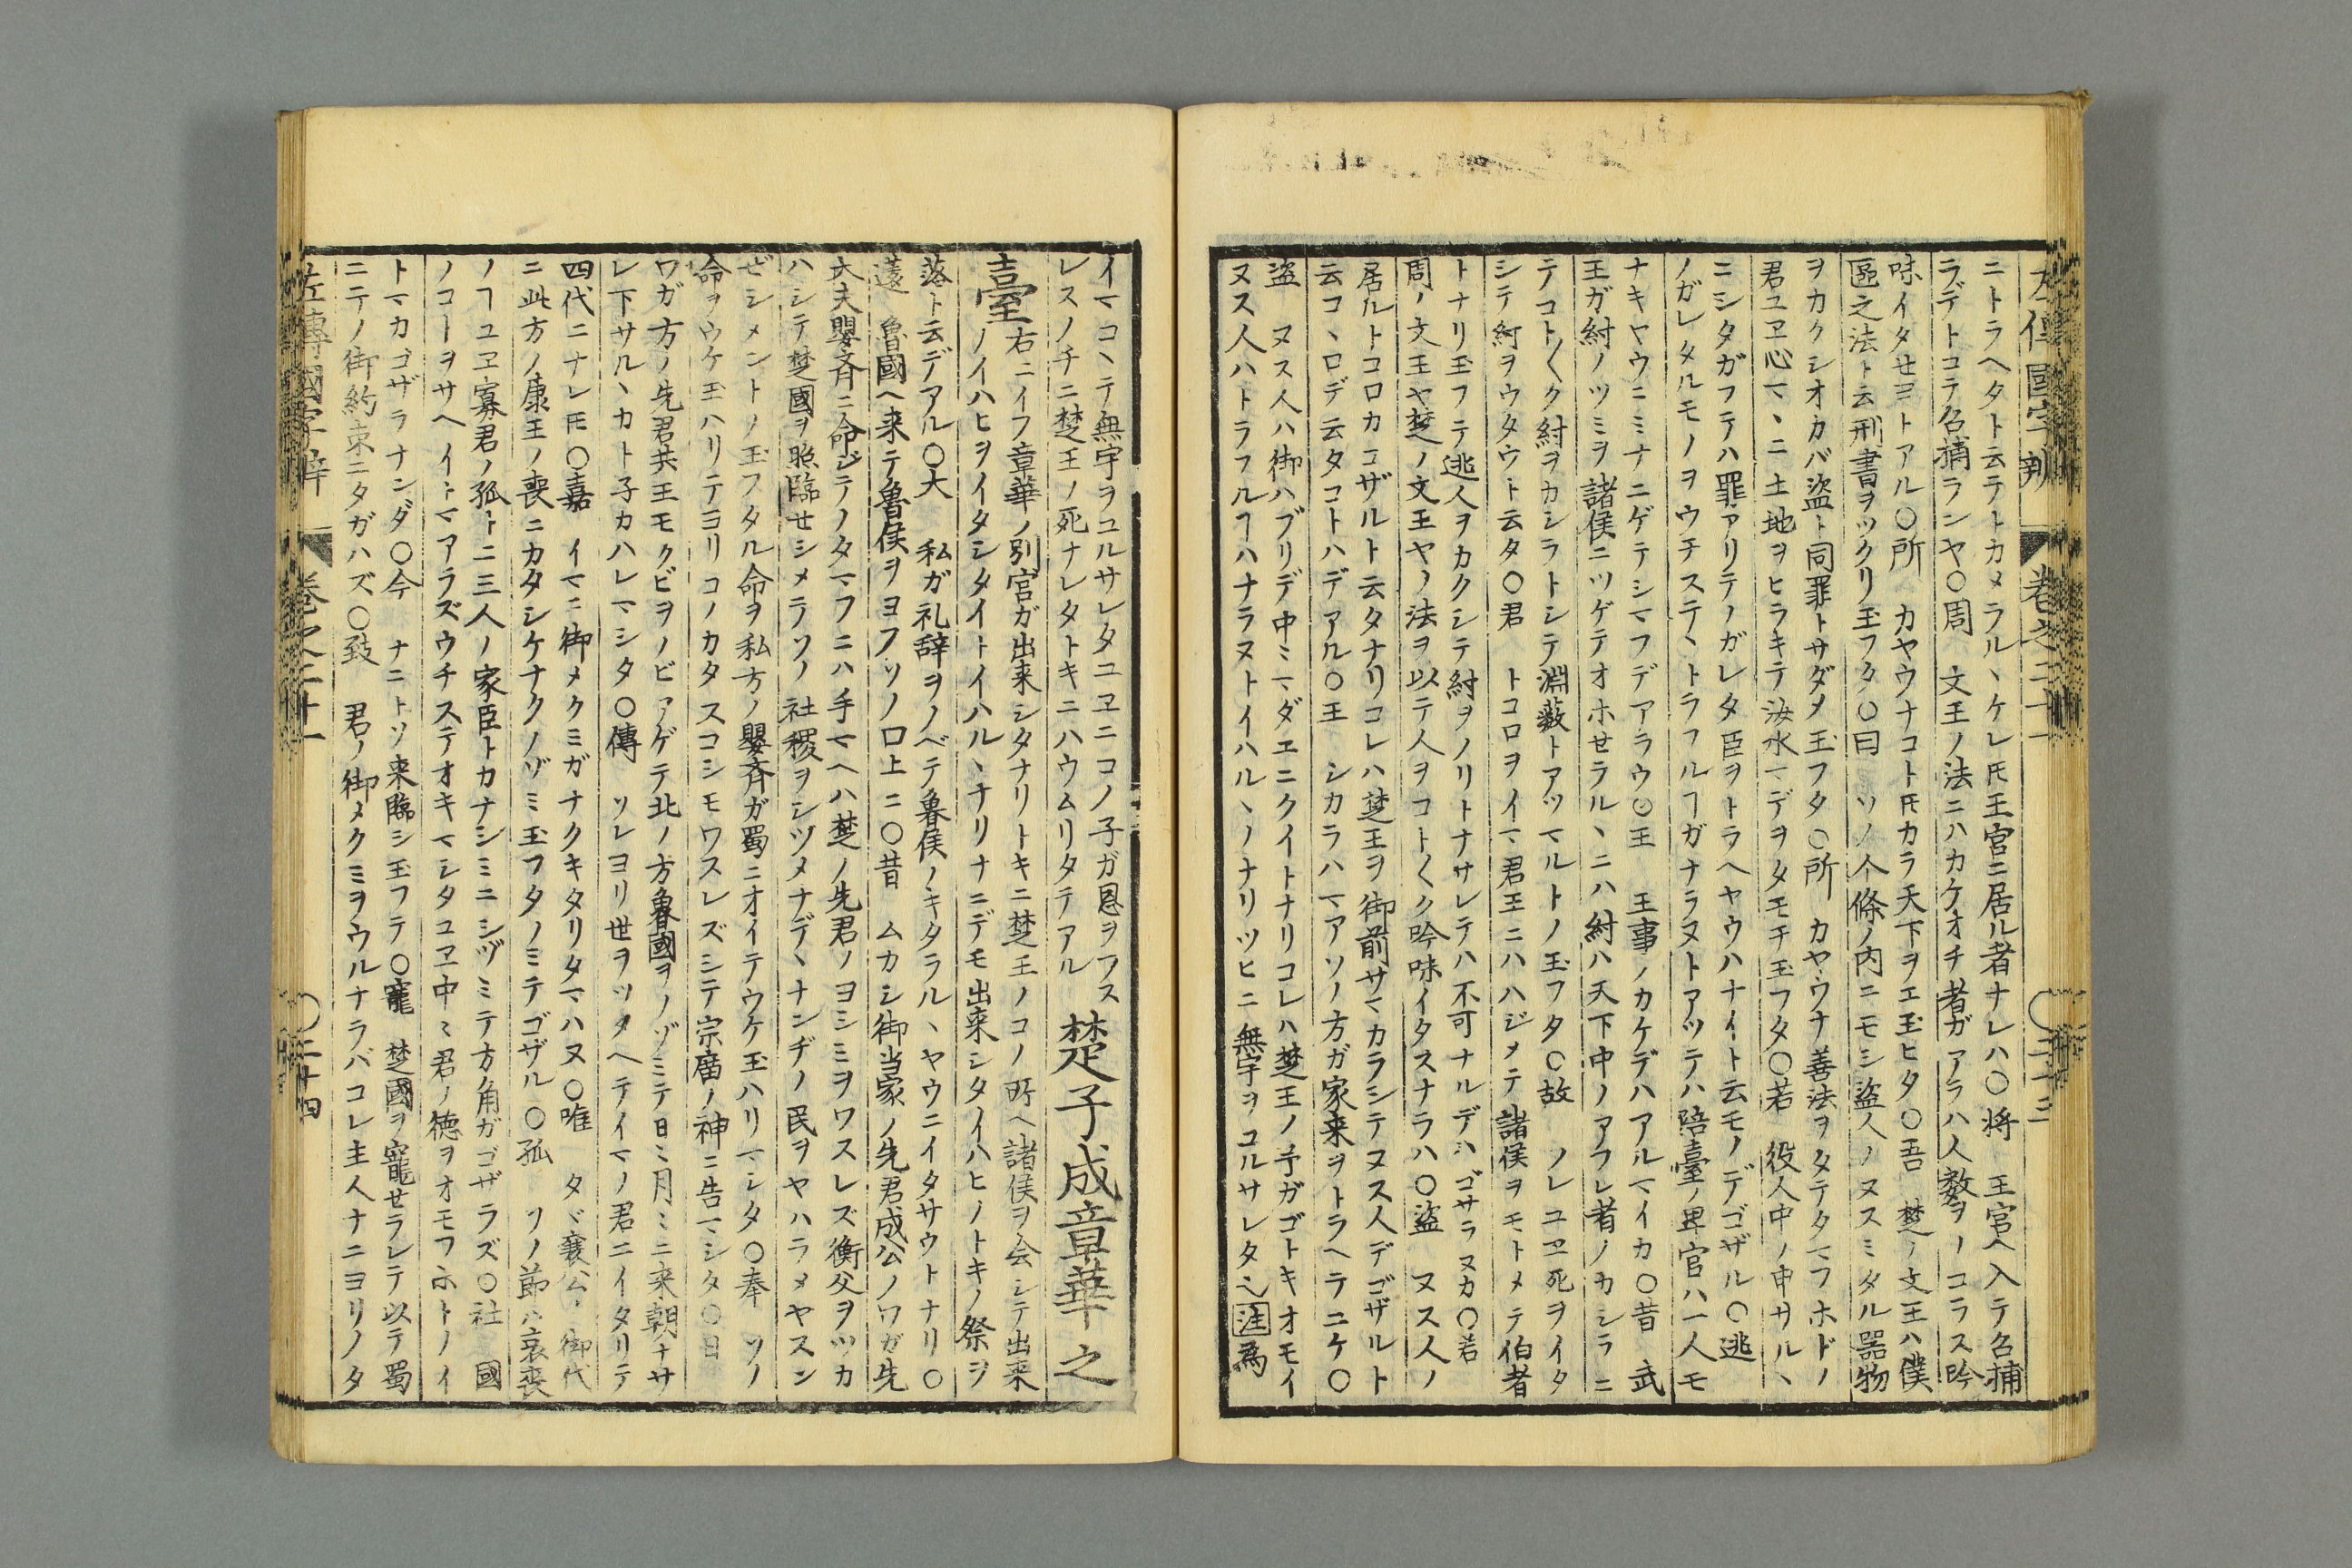 左傳國字辨 巻之二十一 〇二十三
ニトラヘタト云テトカメラルヽケレ𪜈王宮ニ居ル者ナレハ〇将 王宮ヘ入テ召捕
ラデトコテ召捕ランヤ〇周 文王ノ法ニハカケオチ者ガアラハ人数ヲノコラス吟
味イタセヨトアル〇所 カヤウナコト𪜈カラ天下ヲエ玉ヒタ〇吾 楚ノ文王ハ僕
區之法ト云刑書ヲツクリ玉フタ〇曰 ソノ个條ノ内ニモシ盗人ノヌスミタル器物
ヲカクシオカバ盗ト同罪トサダメ玉フタ〇所 カヤウナ善法ヲタテタマフホドノ
君ユヱ心マヽニ土地ヲヒラキテ汝水マデヲタモチ玉フタ〇若 役人中ノ申サルヽ
ニシタガフテハ罪アリテノガレタ臣ヲトラヘヤウハナイト云モノデゴザル〇逃
ノガレタルモノヲウチステヽトラフルヿガナラヌトアツテハ陪臺ノ卑官ハ一人モ
ナキヤウニミナニゲテシマフデアラウ〇王 王事ノカケデハアルマイカ〇昔 武
王ガ紂ノツミヲ諸侯ニツゲテオホセラルヽニハ紂ハ天下中ノアフレ者ノカシラニ
テコト〱ク紂ヲカシラトシテ淵薮トアツマルトノ玉フタ〇故 ソレユヱ死ヲイタ
シテ紂ヲウタウト云タ〇君 トコロヲイマ君王ニハハジメテ諸侯ヲモトメテ伯者
トナリ玉フテ逃人ヲカクシテ紂ヲノリトナサレテハ不可ナルデハゴサラヌカ〇若
周ノ文王ヤ楚ノ文王ヤノ法ヲ以テ人ヲコト〱ク吟味イタスナラハ〇盗 ヌス人ノ
居ルトコロカゴザルト云タナリコレハ楚王ヲ御前サマカラシテヌス人デゴザルト
云コヽロデ云タコトハデアル〇王 シカラハマアソノ方ガ家来ヲトラヘテユケ〇
盗 ヌス人ハ御ハブリデ中〻マダエニクイトナリコレハ楚王ノ予ガゴトキオモイ
ヌス人ハトラフルヿハナラヌトイハルヽノナリツヒニ無宇ヲユルサレタ也 注 為
イマコヽテ無宇ヲユルサレタユヱニコノ子ガ恩ヲワス
レスノチニ楚王ノ死ナレタトキニハウムリタテアル 楚子成章華之
臺 右ニイフ章華ノ別宮ガ出来シタナリトキニ楚王ノコノ所ヘ諸侯ヲ会シテ出来
ノイハヒヲイタシタイトイハルヽナリナニデモ出来シタイハヒノトキノ祭ヲ
落ト云デアル〇大 私ガ礼辞ヲノベテ魯侯ノキタラルヽヤウニイタサウトナリ〇
薳 魯國ヘ来テ魯侯ヲヨフソノ口上ニ〇昔 ムカシ御当家ノ先君成公ノワガ先
大夫嬰斉ニ命ジテノタマフニハ手マヘハ楚ノ先君ノヨシミヲワスレズ衡父ヲツカ
ハシテ楚國ヲ照臨セシメテソノ社稷ヲシヅメナデヽナンヂノ民ヲヤハラメヤスン
ゼシメントノ玉フタル命ヲ私方ノ嬰斉ガ蜀ニオイテウケ玉ハリマシタ〇奉 ソノ
命ヲウケ玉ハリテヨリコノカタスコシモワスレズシテ宗廟ノ神ニ告マシタ〇曰
ワガ方ノ先君共王モクビヲノビアゲテ北ノ方魯國ヲノゾミテ日ミ月ミニ来朝ナサ
レ下サルヽカト子カハレマシタ〇傳 ソレヨリ世ヲツタヘテイマノ君ニイタリテ
四代ニナレ𪜈〇嘉 イマニ御メクミガナクキタリタマハヌ〇唯 タヾ襄公ノ御代
ニ此方ノ康王ノ喪ニカタシケナクノゾミ玉フタノミテゴザル〇孤 ソノ節ハ哀喪
ノヿユヱ寡君ノ孤ト二三人ノ家臣トカナシミニシヅミテ方角ガゴザラズ〇社 國
ノコトヲサヘイトマアラズウチステオキマシタユヱ中〻君ノ徳ヲオモフホトノイ
トマカゴザラナンダ〇今 ナニトソ来臨シ玉フテ〇寵 楚國ヲ寵セラレテ以テ蜀
ニテノ御約束ニタガハズ〇致 君ノ御メクミヲウルナラバコレ主人ナニヨリノタ
左傳國字辨 巻之二十一 〇二十四